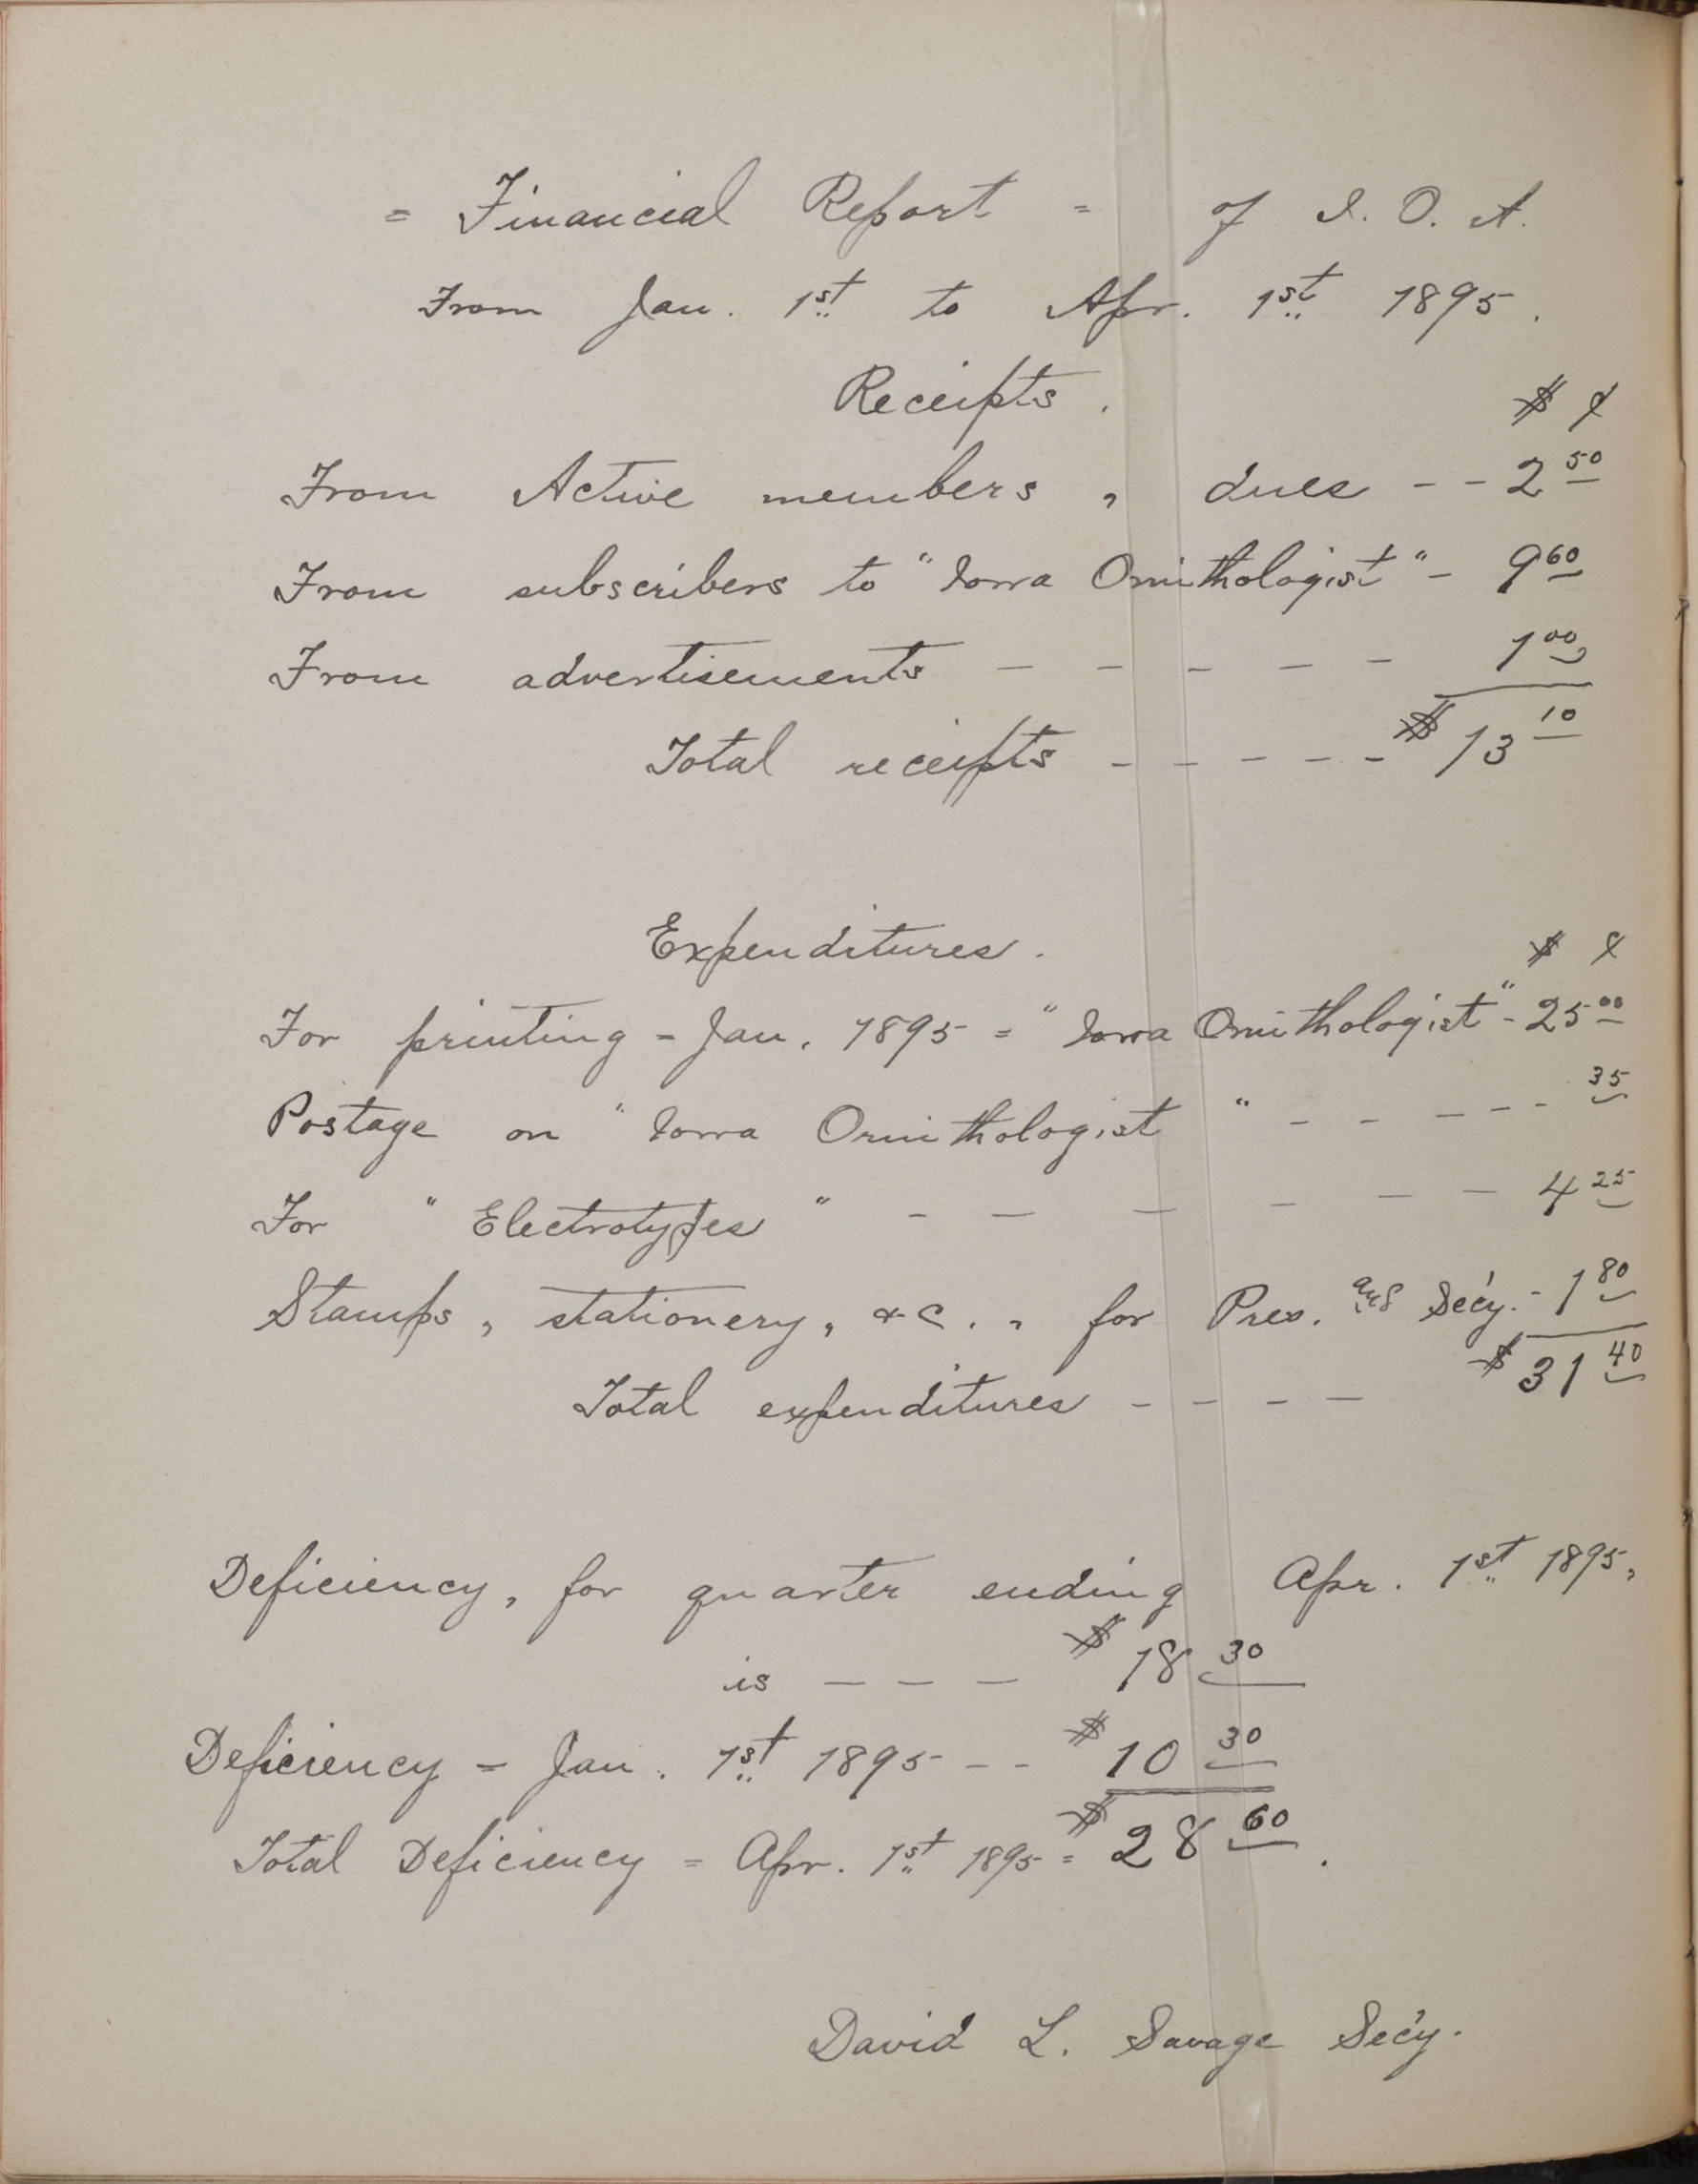 = Financial Report = of I. O. A.
From Jan. 1st to Apr. 1st 1895.
Receipts.
$ ¢
From Active members, dues - - 2 50
From subscribers to "Iowa Ornithologist" - 9 60
From advertisements - - - - - 1 00
Total receipts - - - - - $ 13 10
Expenditures.
$ ¢
For printing = Jan. 1895 = "Iowa Ornithologist" - 25 00
Postage on "Iowa Ornithologist" - - - - - 35
For "Electrotypes" - - - - - - 4 25
Stamps, stationery, &c., for Pres. and Sec'y. - 1 80
Total expenditures - - - - $ 31 40
Deficiency, for quarter ending Apr. 1st 1895,
is - - - $ 18 30
Deficiency = Jan. 1st 1895 - - $ 10 30
Total Deficiency = Apr. 1st 1895 = $ 28 60.
David L. Savage Sec'y.